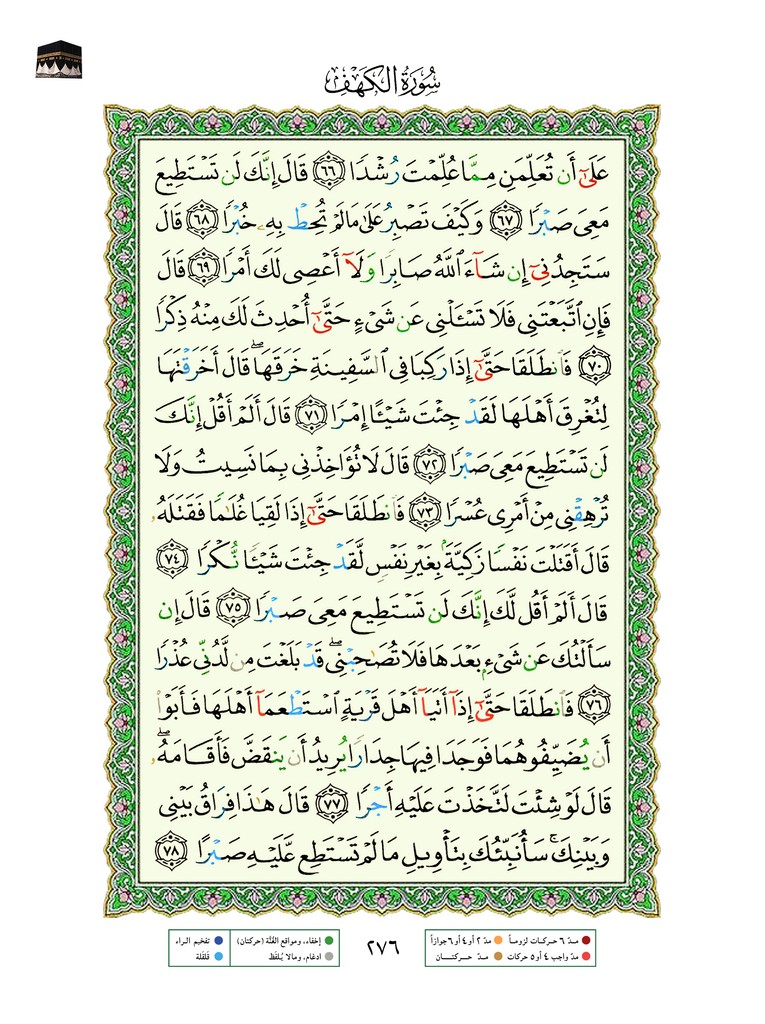 سُورَةُ الكَهۡفِ
عَلَىٰٓ أَن تُعَلِّمَنِ مِمَّا عُلِّمۡتَ رُشۡدٗا ٦٦ قَالَ إِنَّكَ لَن تَسۡتَطِيعَ
مَعِىَ صَبۡرٗا ٦٧ وَكَيۡفَ تَصۡبِرُ عَلَىٰ مَا لَمۡ تُحِطۡ بِهِۦ خُبۡرٗا ٦٨ قَالَ
سَتَجِدُنِىٓ إِن شَآءَ ٱللَّهُ صَابِرٗا وَلَآ أَعۡصِى لَكَ أَمۡرٗا ٦٩ قَالَ
فَإِنِ ٱتَّبَعۡتَنِى فَلَا تَسۡـَٔلۡنِى عَن شَىۡءٍ حَتَّىٰٓ أُحۡدِثَ لَكَ مِنۡهُ ذِكۡرٗا
٧٠ فَٱنطَلَقَا حَتَّىٰٓ إِذَا رَكِبَا فِى ٱلسَّفِينَةِ خَرَقَهَاۖ قَالَ أَخَرَقۡتَهَا
لِتُغۡرِقَ أَهۡلَهَا لَقَدۡ جِئۡتَ شَيۡـًٔا إِمۡرٗا ٧١ قَالَ أَلَمۡ أَقُلۡ إِنَّكَ
لَن تَسۡتَطِيعَ مَعِىَ صَبۡرٗا ٧٢ قَالَ لَا تُؤَاخِذۡنِى بِمَا نَسِيتُ وَلَا
تُرۡهِقۡنِى مِنۡ أَمۡرِى عُسۡرٗا ٧٣ فَٱنطَلَقَا حَتَّىٰٓ إِذَا لَقِيَا غُلَٰمٗا فَقَتَلَهُۥ
قَالَ أَقَتَلۡتَ نَفۡسٗا زَكِيَّةَۢ بِغَيۡرِ نَفۡسٖ لَّقَدۡ جِئۡتَ شَيۡـٔٗا نُّكۡرٗا ٧٤
قَالَ أَلَمۡ أَقُل لَّكَ إِنَّكَ لَن تَسۡتَطِيعَ مَعِىَ صَبۡرٗا ٧٥ قَالَ إِن
سَأَلۡتُكَ عَن شَىۡءِۭ بَعۡدَهَا فَلَا تُصَٰحِبۡنِىۖ قَدۡ بَلَغۡتَ مِن لَّدُنِّى عُذۡرٗا
٧٦ فَٱنطَلَقَا حَتَّىٰٓ إِذَآ أَتَيَآ أَهۡلَ قَرۡيَةٍ ٱسۡتَطۡعَمَآ أَهۡلَهَا فَأَبَوۡا۟
أَن يُضَيِّفُوهُمَا فَوَجَدَا فِيهَا جِدَارٗا يُرِيدُ أَن يَنقَضَّ فَأَقَامَهُۥۖ
قَالَ لَوۡ شِئۡتَ لَتَّخَذۡتَ عَلَيۡهِ أَجۡرٗا ٧٧ قَالَ هَٰذَا فِرَاقُ بَيۡنِى
وَبَيۡنِكَۚ سَأُنَبِّئُكَ بِتَأۡوِيلِ مَا لَمۡ تَسۡتَطِع عَّلَيۡهِ صَبۡرًا ٧٨
مـدّ ٦ حـركـات لزومـاً مدّ ٢ أو ٤ أو ٦ جوازاً
مدّ واجب ٤ أو ٥ حركات مـدّ حــركتــان
٢٧٦
إخفاء، ومواقع الغُنَّة (حركتان) تفخيم الـراء
ادغام، ومالا يُـلفَظ قلقلة